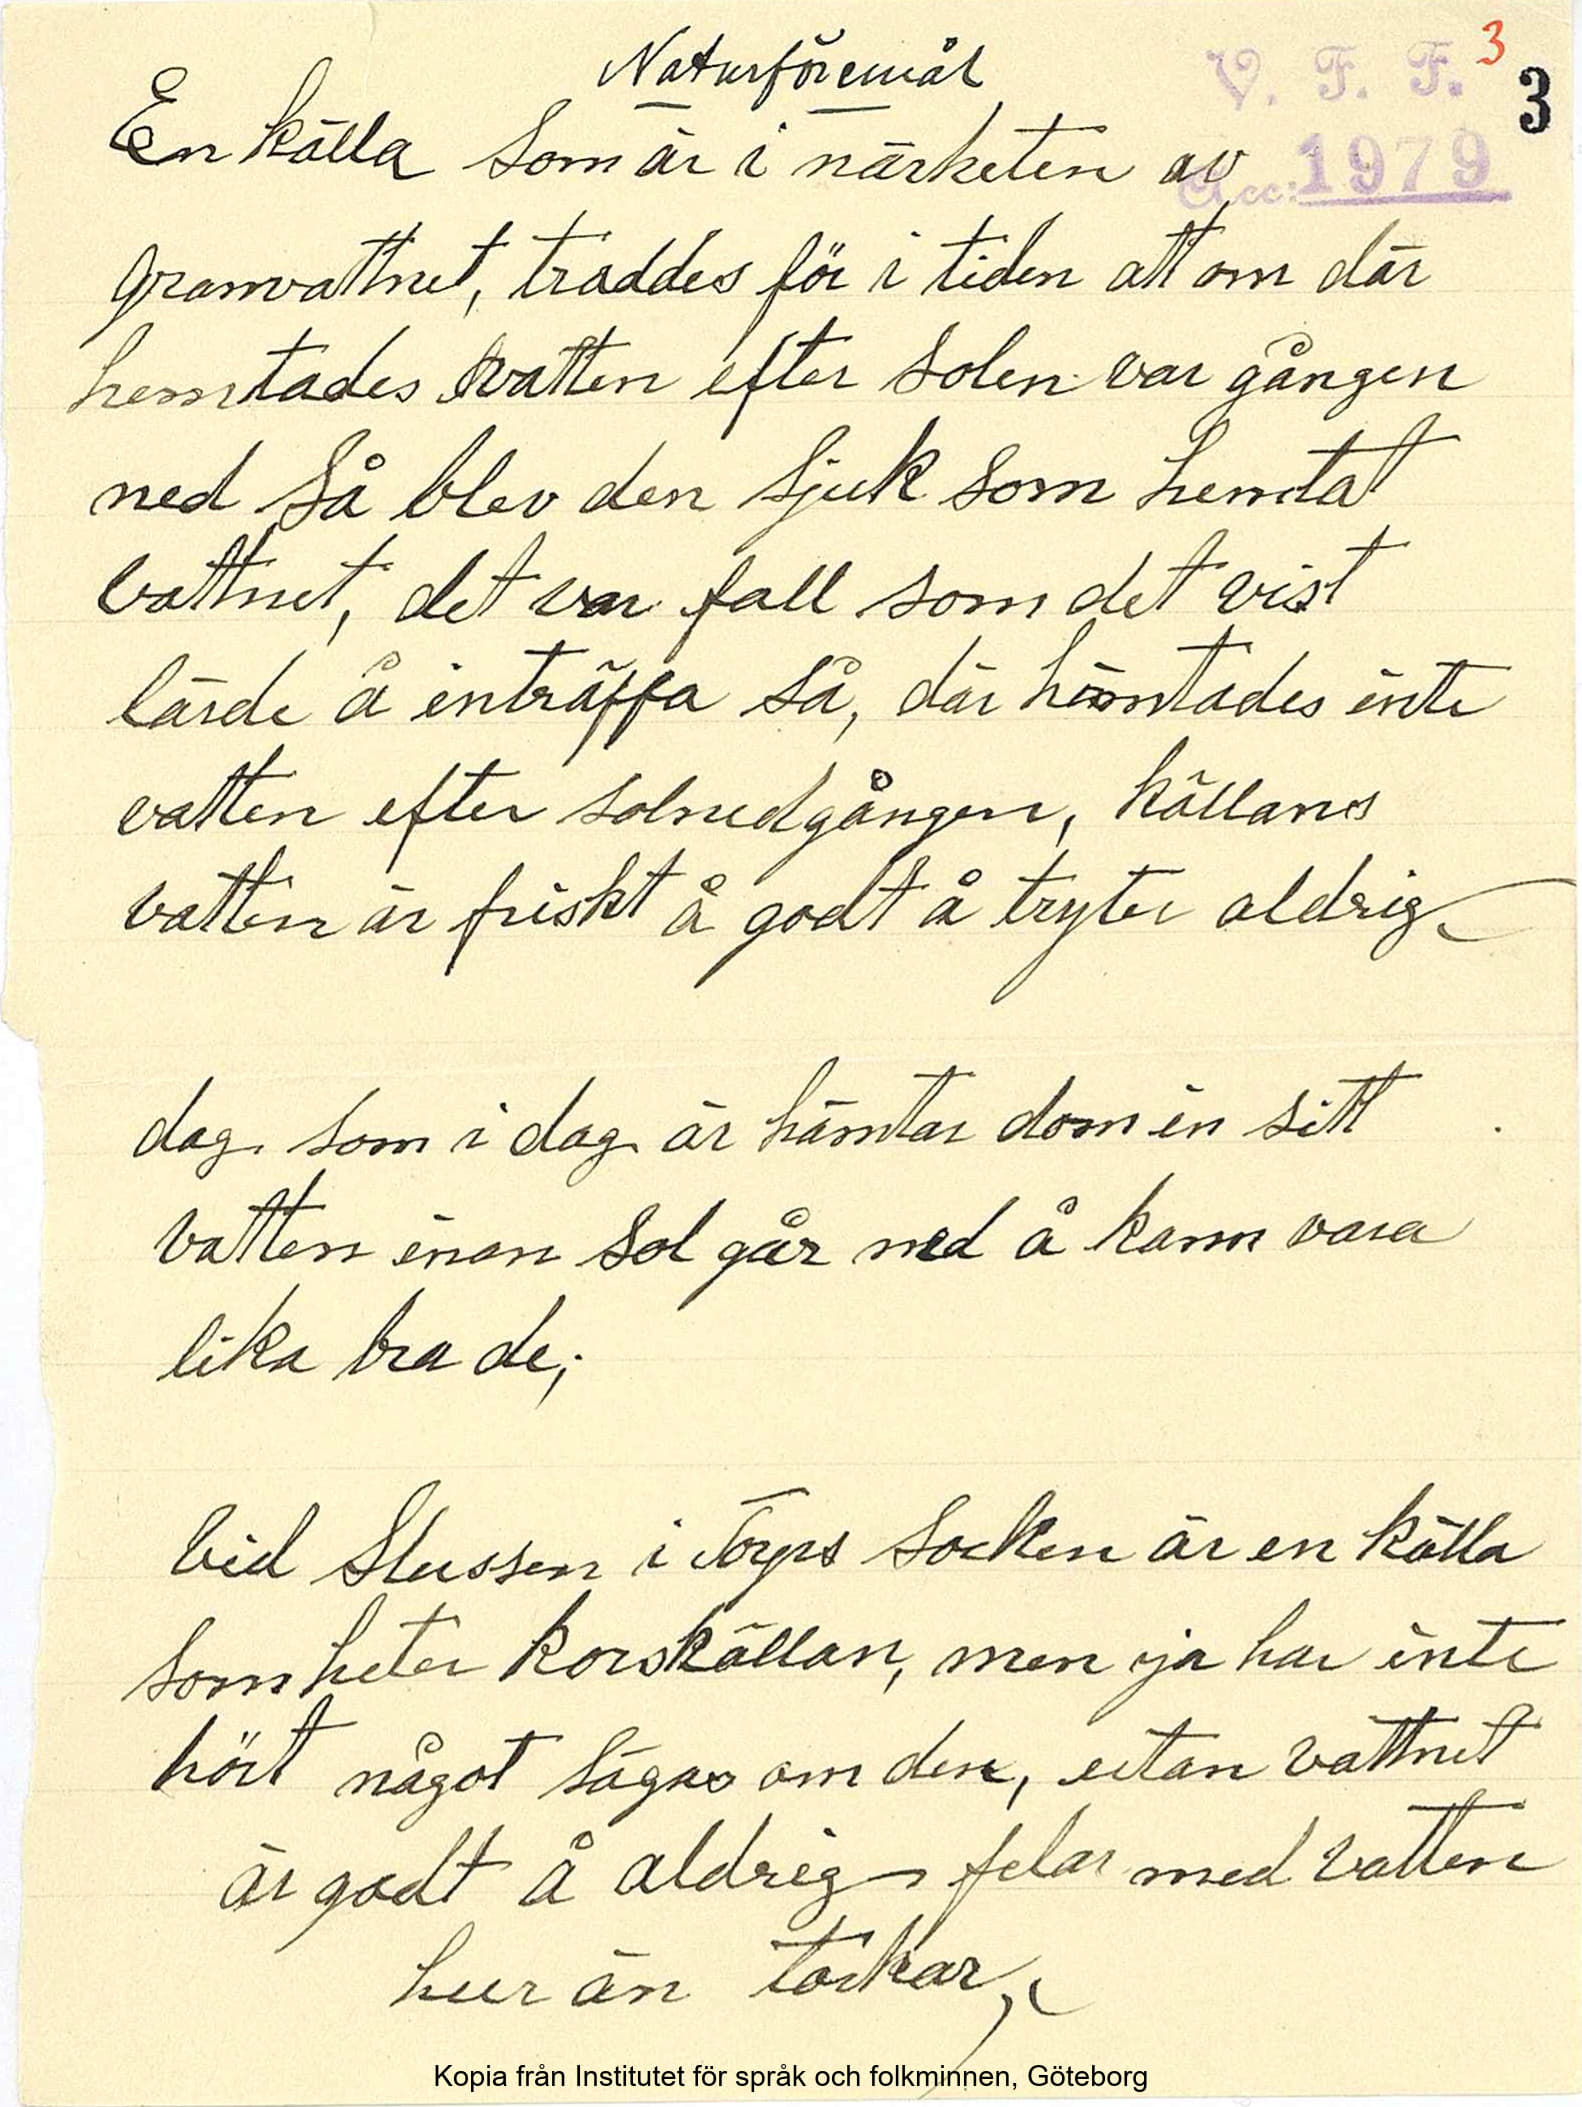 Naturföremål
V. F. F. 3
3
En källa som är i närheten av
Acc: 1979
Granvattnet, traddes för i tiden att om där
hemtades vatten efter solen var gången
ned så blev den sjuk som hemtat
vattnet, det var fall som det vist
lärde å inträffa så, där hämtades inte
vatten efter solnedgången, källans
vatten är friskt å godt å tryter aldrig
dag som i dag är hämtar dom in sitt
vatten inan sol går ned å kann vara
lika bra de,
Vid Slussen i Torps Socken är en källa
som heter korskällan, men ja har inte
hört något sägas om den, utan vattnet
är godt å aldrig felar med vatten
hur än torkar
Kopia från Institutet för språk och folkminnen, Göteborg